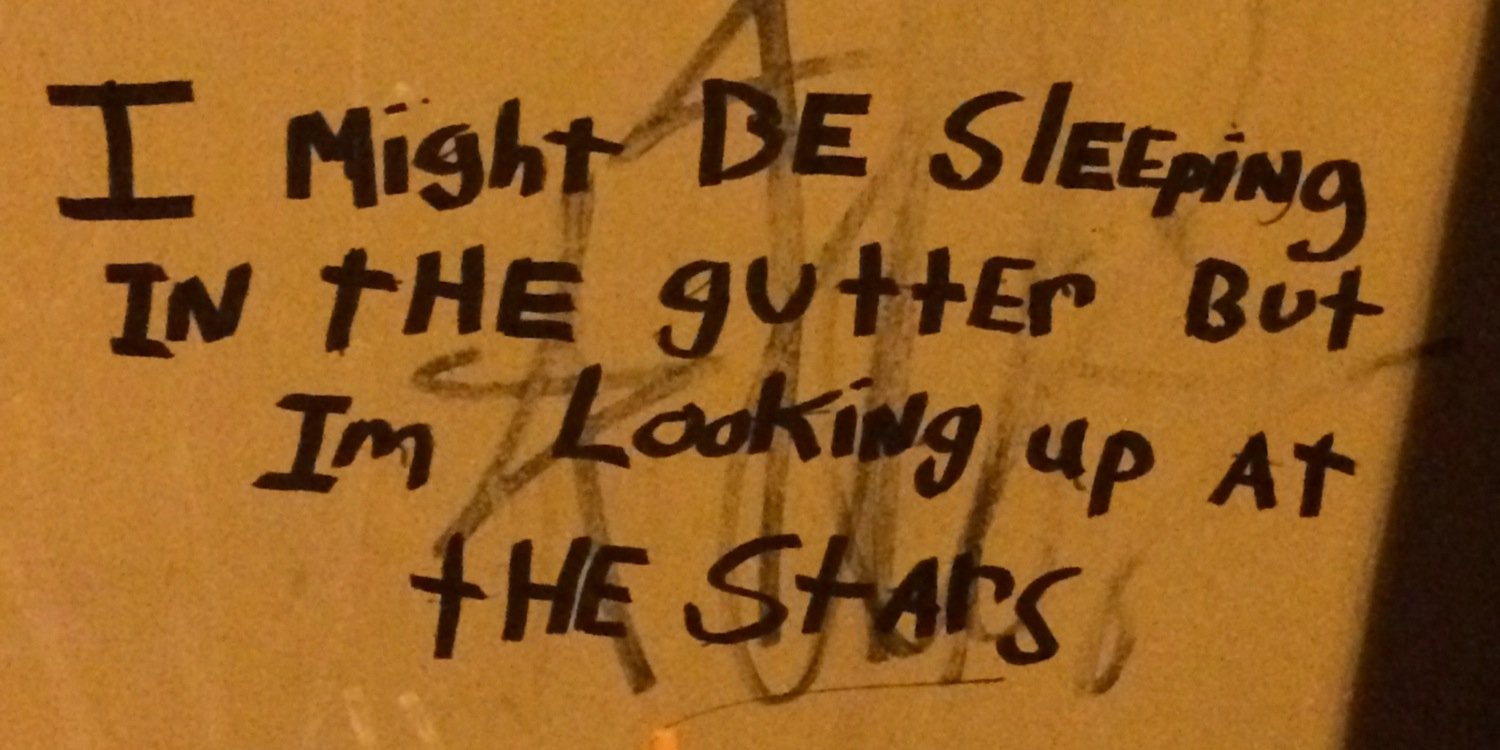 I Might BE SlEEpiNg
IN tHE guttEr But
Im LookiNg up At
tHE StArs